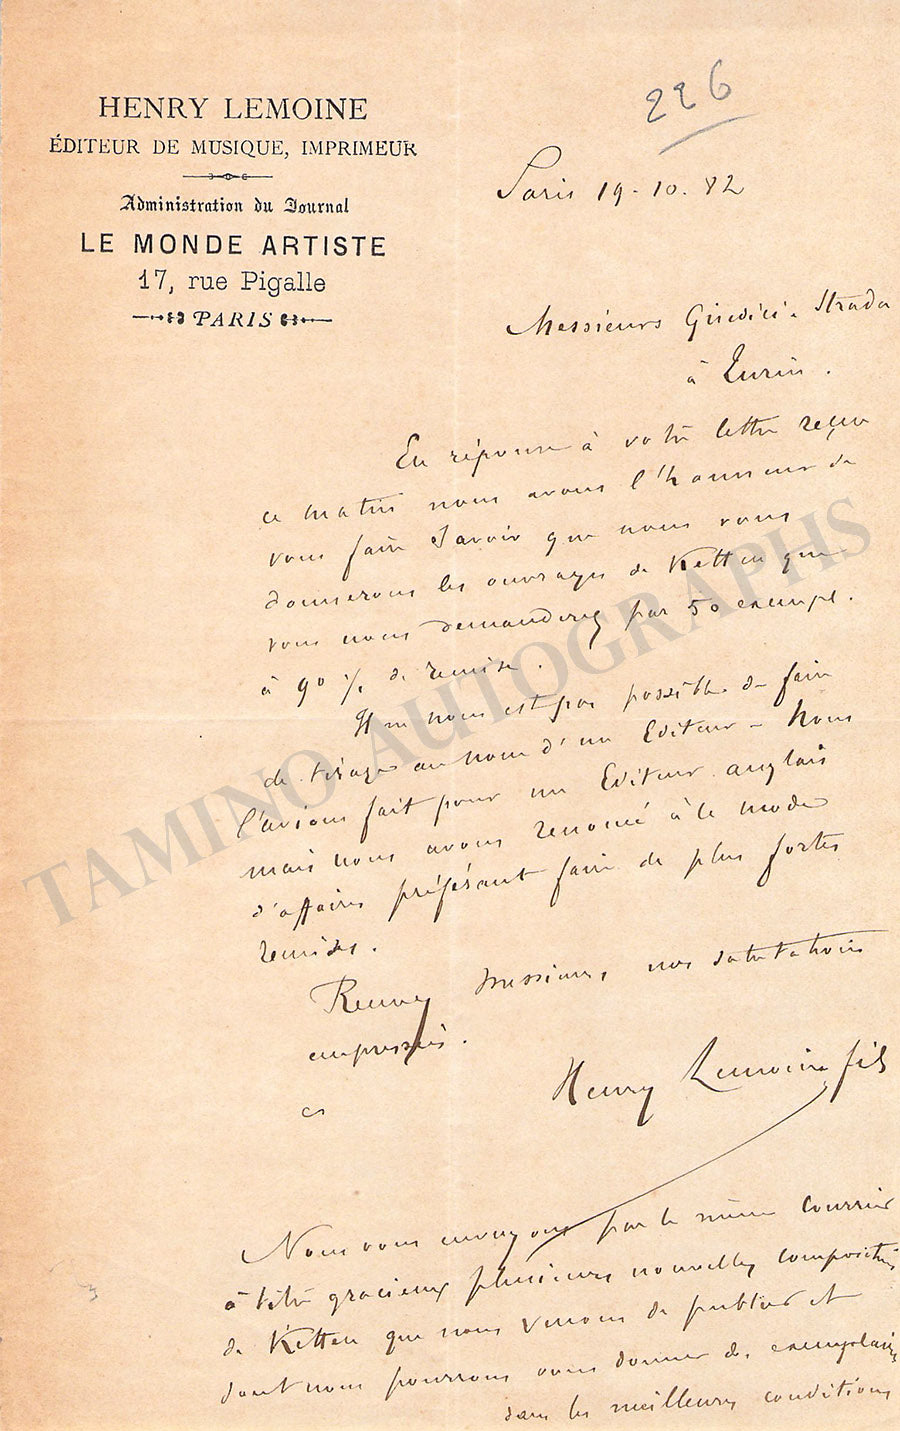 HENRY LEMOINE
ÉDITEUR DE MUSIQUE, IMPRIMEUR
Administration du Journal
LE MONDE ARTISTE
17, rue Pigalle
PARIS
226
Paris 19-10.82
Messieurs Giudici & Strada
à Turin.
En réponse à votre lettre reçue
ce matin nous avons l'honneur de
vous faire savoir que nous vous
donnerons les ouvrages de Ketten que
vous nous demanderez par 50 exempl.
à 90 % de remise.
Il ne nous est pas possible de faire
de tirages au nom d'un Editeur - Nous
l'avions fait pour un Editeur anglais
mais nous avons renoncé à ce mode
d'affaires préférant faire de plus fortes
remises.
Recevez Messieurs, nos salutations
empressées.
Henry Lemoine fils
Nous vous envoyons par le même courrier
à titre gracieux plusieurs nouvelles compositions
de Ketten que nous venons de publier et
dont nous pourrons vous donner des exemplaires
dans les meilleures conditions
TAMINO AUTOGRAPHS